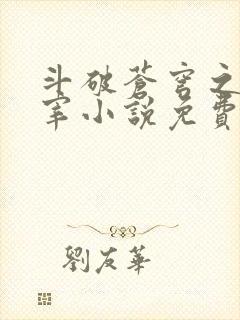 斗破蒼穹之
宰小說免費
劉友華